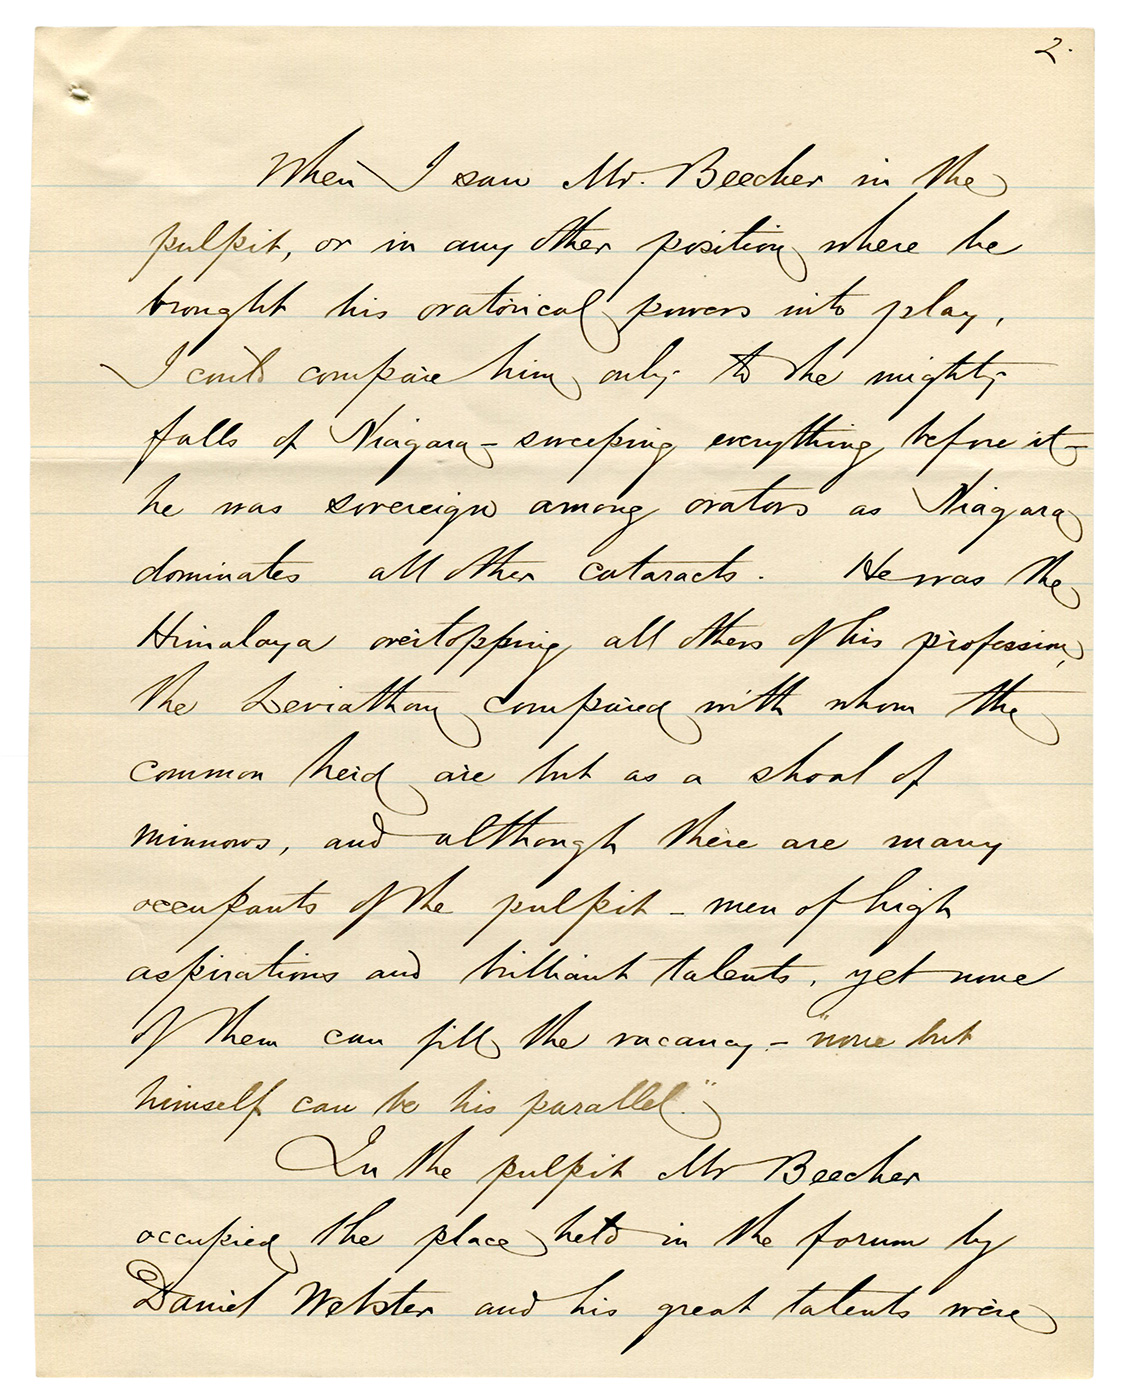 2.
When I saw Mr. Beecher in the
pulpit, or in any other position where he
brought his oratorical powers into play,
I could compare him only to the mighty
falls of Niagara - sweeping everything before it -
he was sovereign among orators as Niagara
dominates all other cataracts. He was the
Himalaya overtopping all others of his profession,
the Leviathan compared with whom the
common herd are but as a shoal of
minnows, and although there are many
occupants of the pulpit - men of high
aspirations and brilliant talents, yet none
of them can fill the vacancy - "none but
himself can be his parallel."
In the pulpit Mr Beecher
occupied the place held in the forum by
Daniel Webster and his great talents were